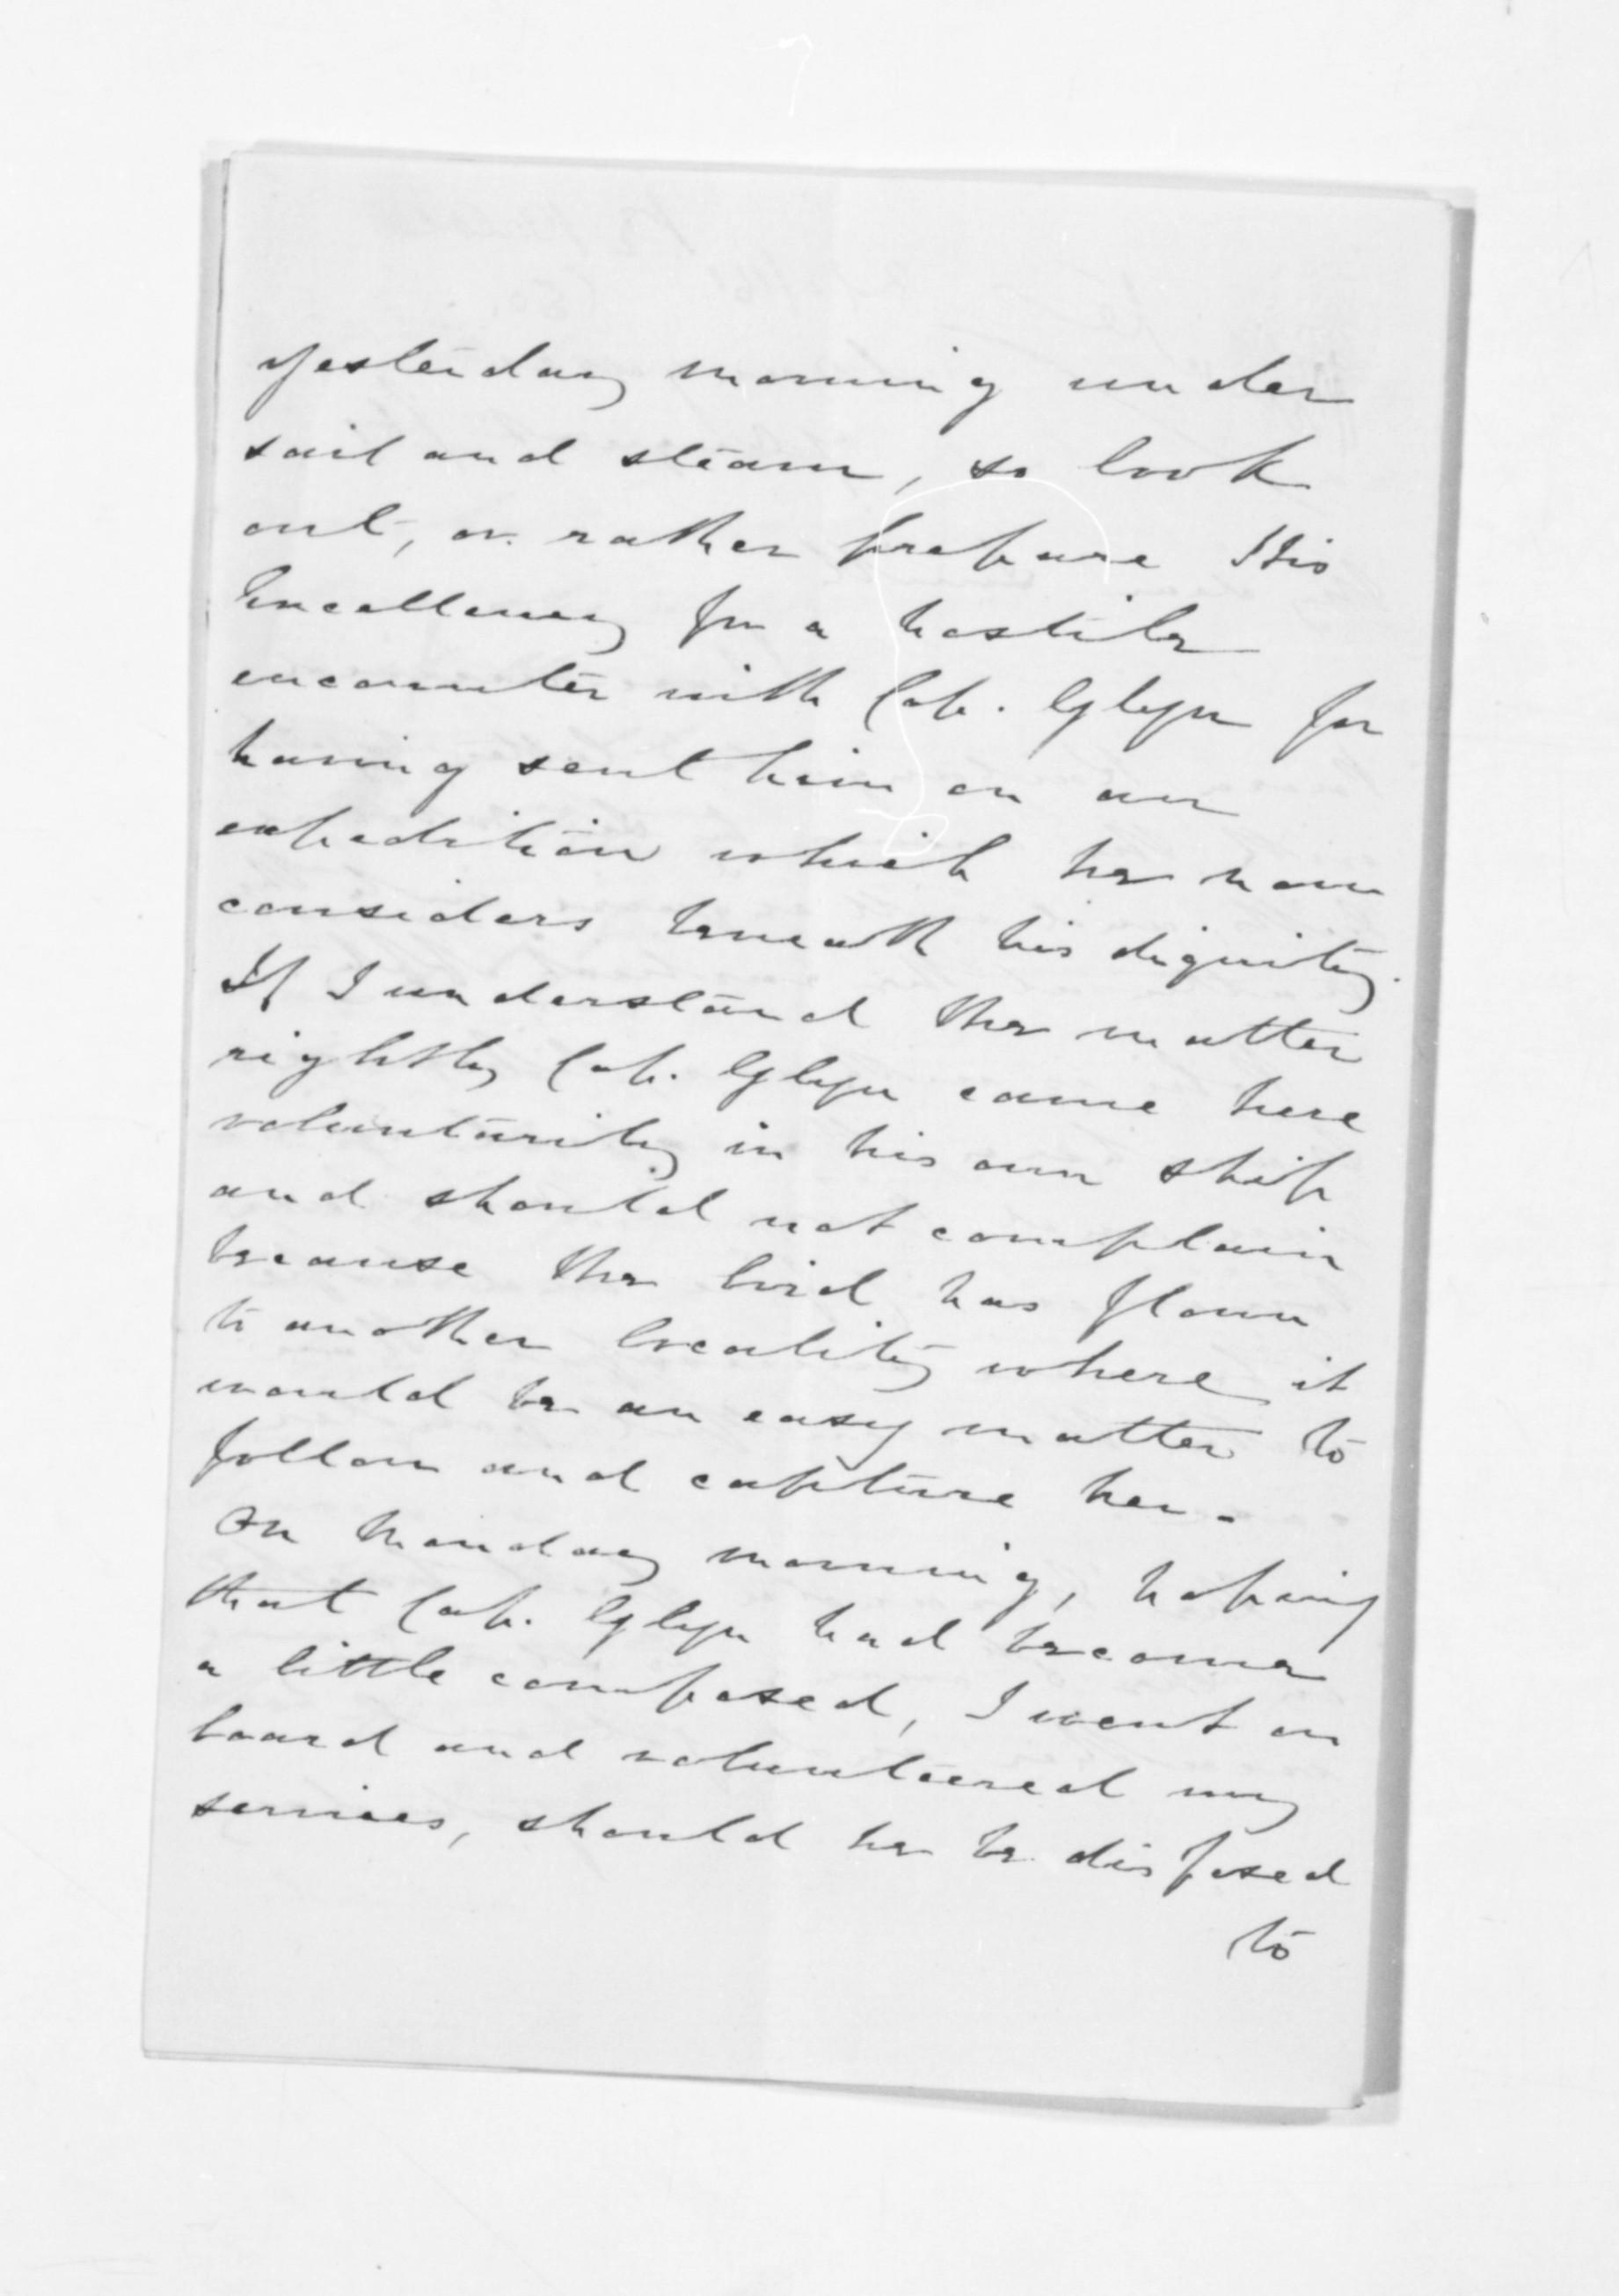 yesterday morning under
sail and steam, so look
out, or rather prepare His
Excellency for a hostile
encounter with Cap. Glyn for
having sent him on an
expedition which he now
considers beneath his dignity.
If I understand the matter
rightly Cap. Glyn came here
voluntarily in his own ship
and should not complain
because the bird has flown
to another locality where it
would be an easy matter to
follow and capture her.
On Monday morning, hoping
that Cap. Glyn had become
a little composed, I went on
board and volunteered my
services, should he be disposed
to